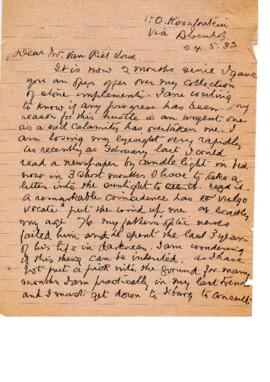 P.O. Koegfontein
Via
24.5.32
Dear Mr. Van Riet Lowe
It is now 2 months since I gave
you an open offer over my collection
of stone implements. I am writing
to know if any progress has been. My
reason for this hustle is an urgent one
as a sad calamity has overtaken me. I
am losing my eyesight very rapidly
as recently as February last I could
read a newspaper by candle light in bed
now in 3 short months I have to take a
letter into the sunlight to read it.
A remarkable coincidence has
put the wind up me
my age 76 my fathers optic nerves
failed him and he spent the last 3 years
of his life in darkness. I am wondering
if this thing can be inherited. as I have
not put a pick into the ground for many
months I am practically in my last trench
and I must get down to J'burg to consult